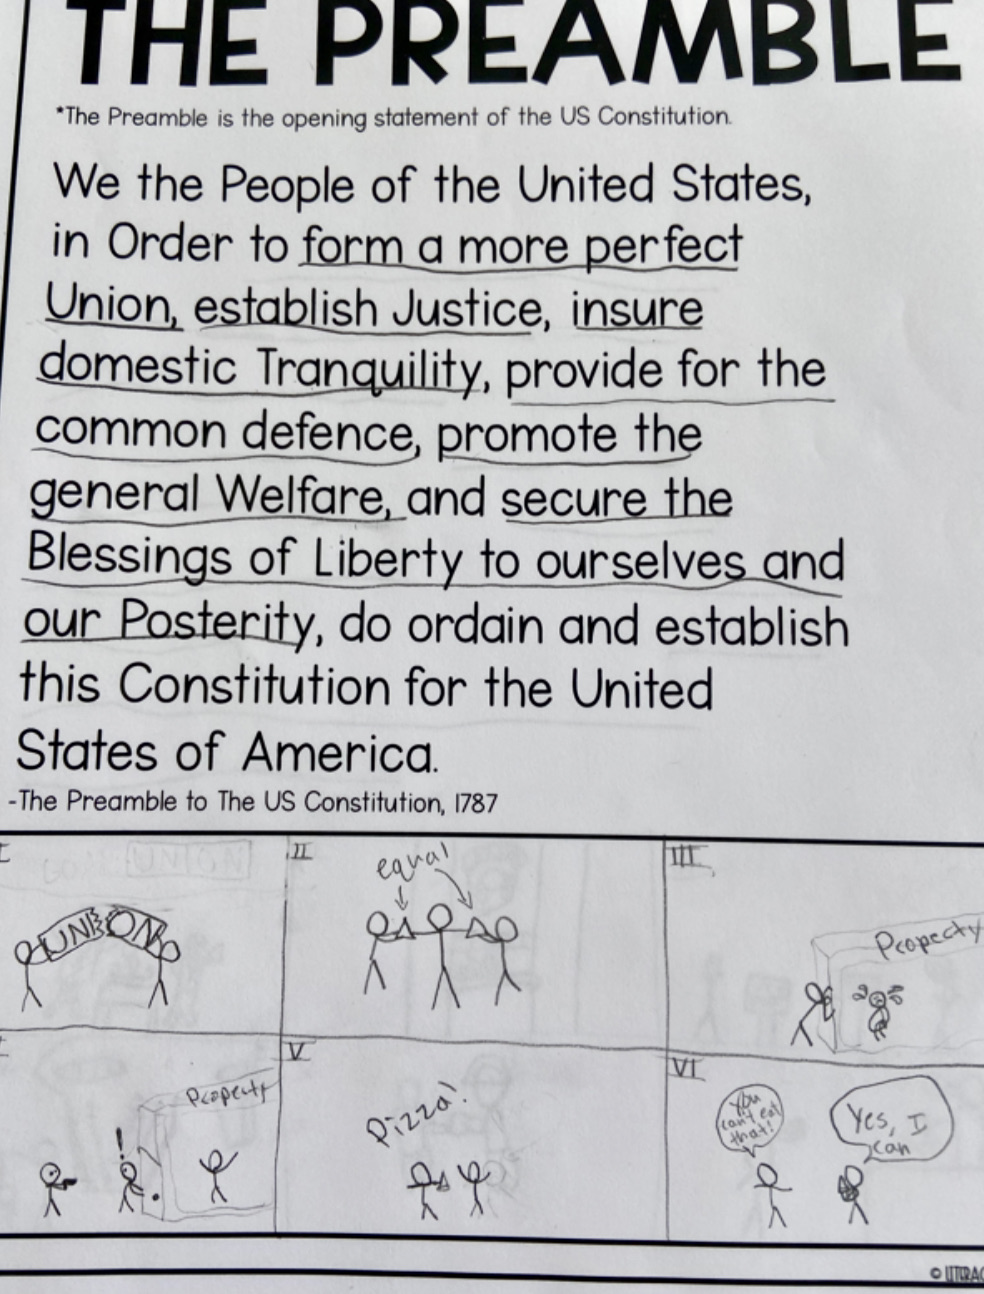 THE PREAMBLE
*The Preamble is the opening statement of the US Constitution.
We the People of the United States,
in Order to form a more perfect
Union, establish Justice, insure
domestic Tranquility, provide for the
common defence, promote the
general Welfare, and secure the
Blessings of Liberty to ourselves and
our Posterity, do ordain and establish
this Constitution for the United
States of America.
-The Preamble to The US Constitution, 1787
I
UNION
II
equal
III
Property
Property
V
Pizza!
VI
You
can't eat
that!
Yes, I
can